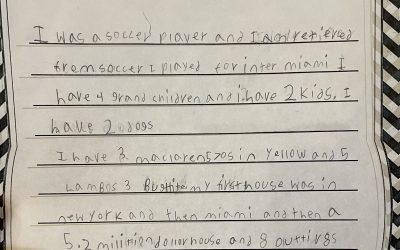 I was a soccer player and I am retired
from soccer I played for inter miami I
have 4 grand children and i have 2 kids. I
have 2 dogs
I have 3 maclaren 570s in yellow and 5
Lambos 3 my first house was in
new york and then miami and then a
5.2 million dollor house and 8